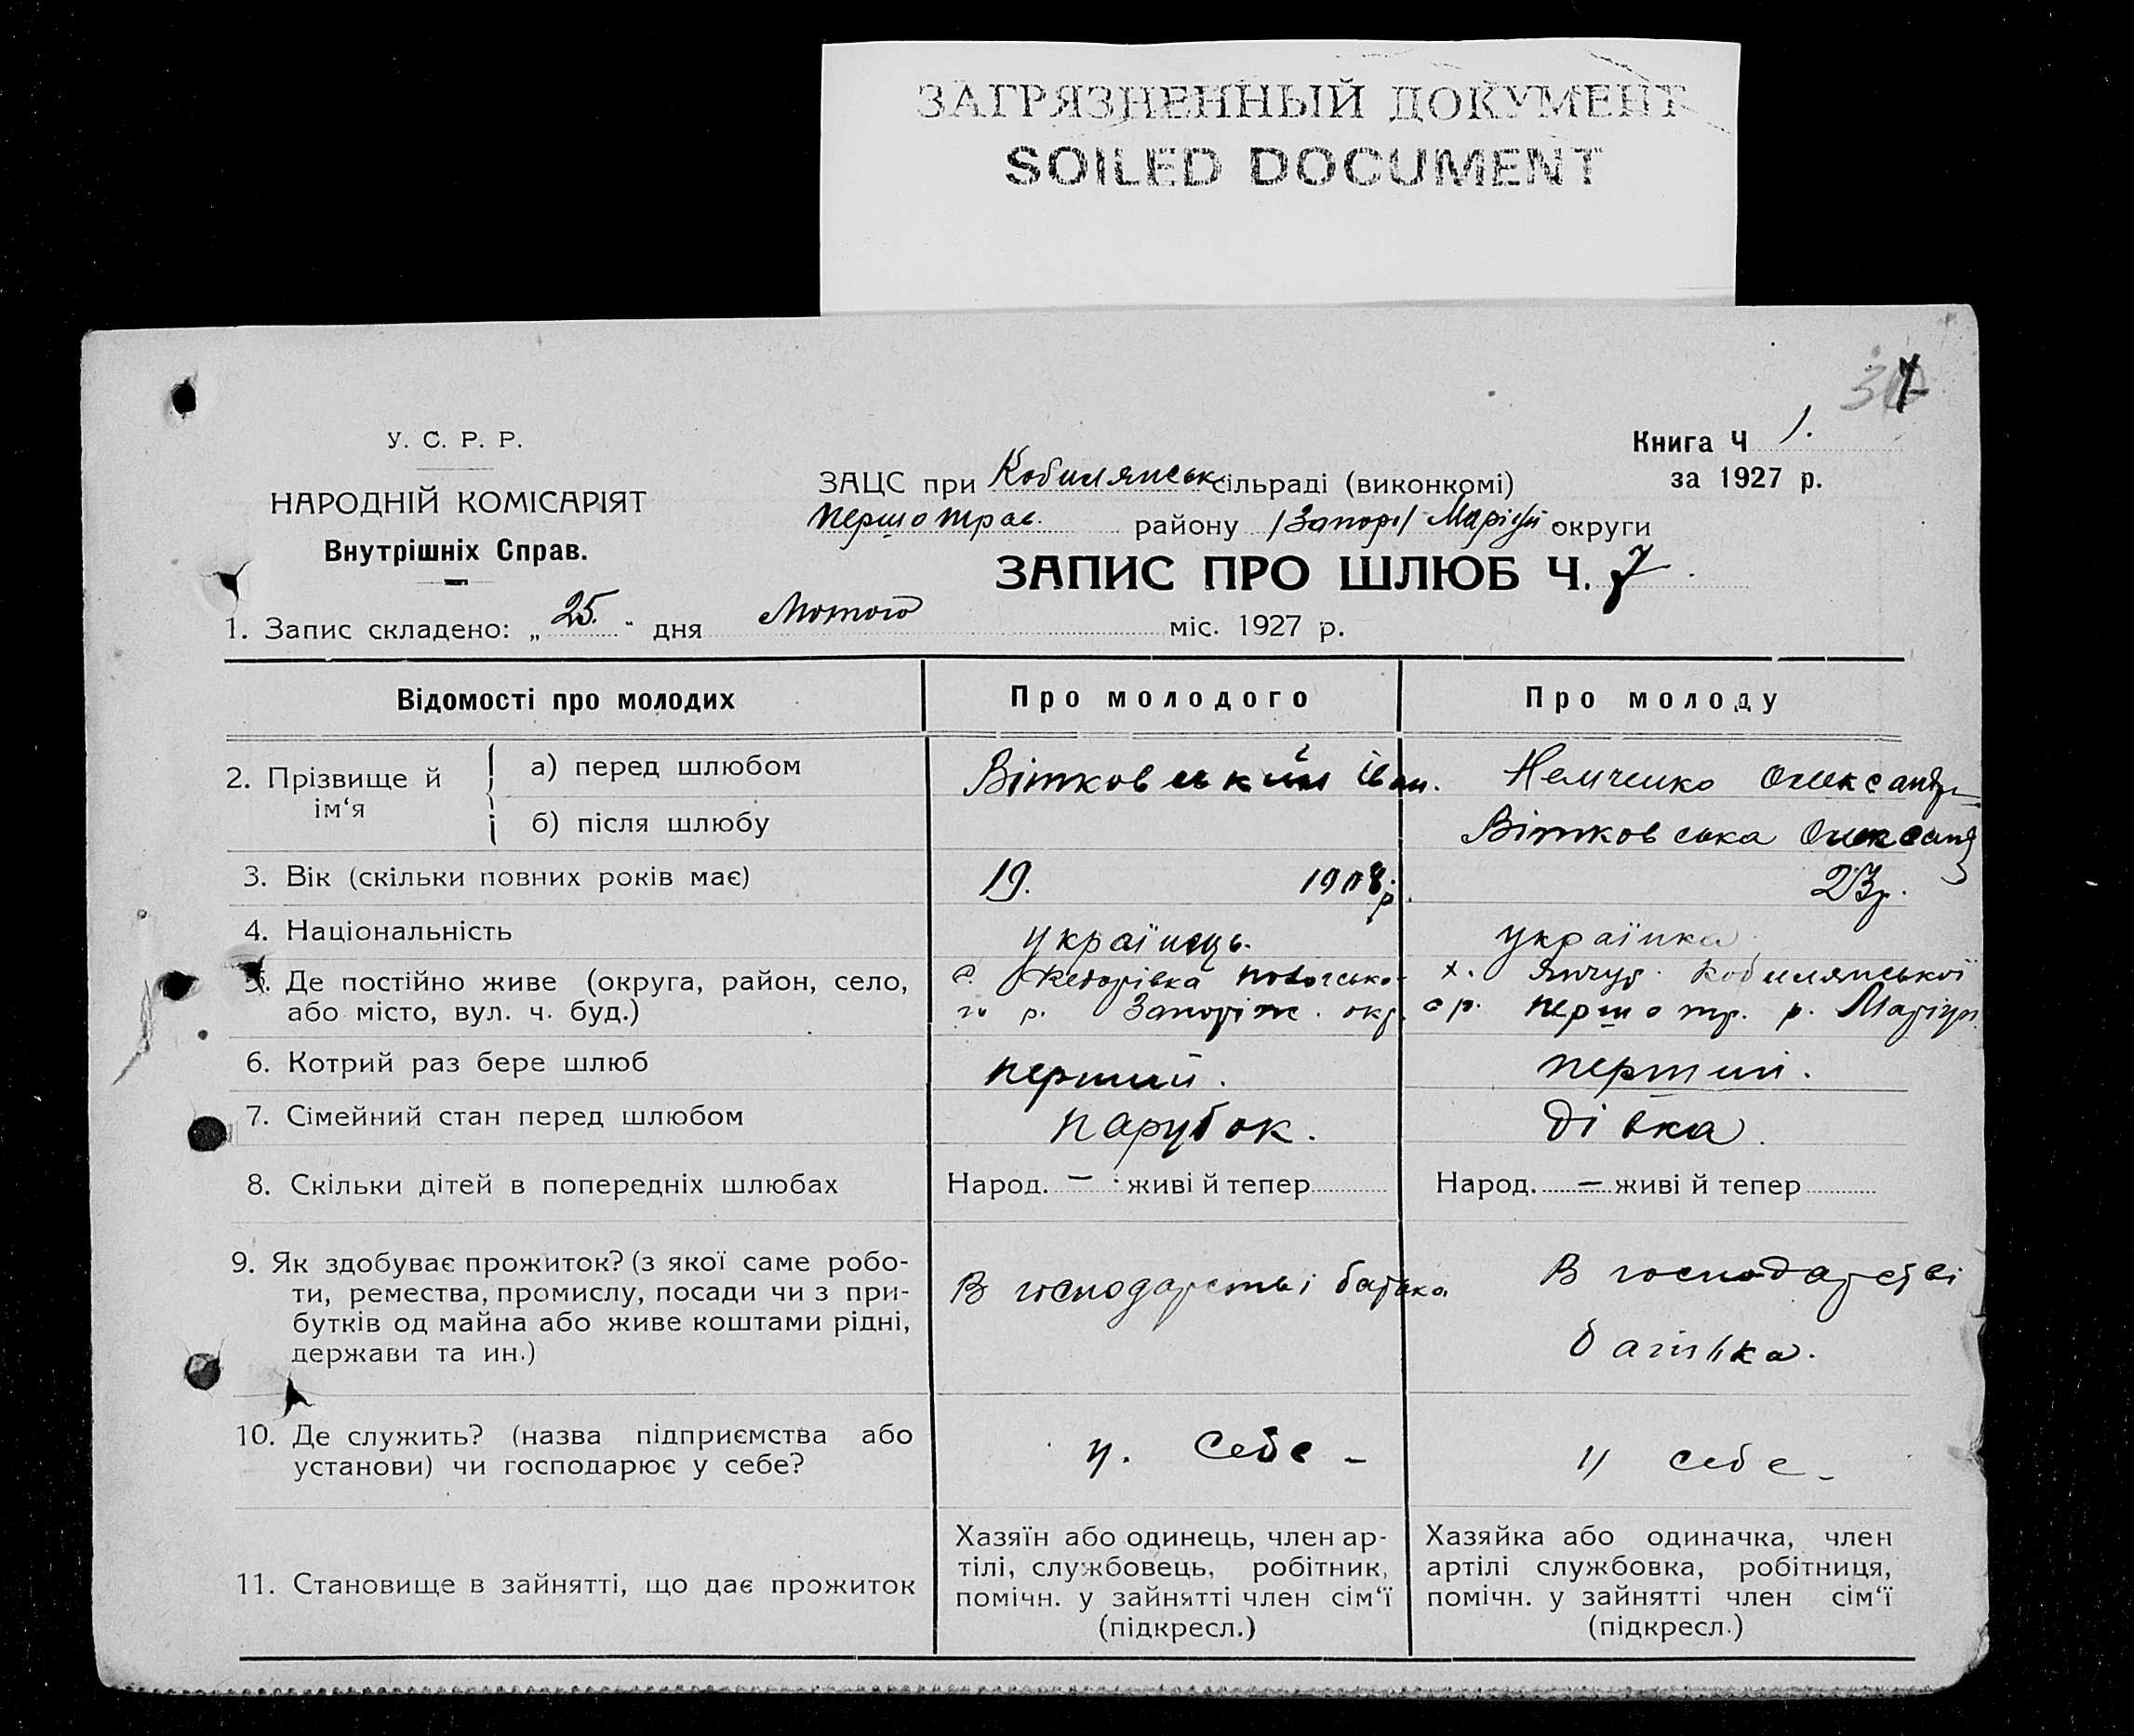 ЗАГРЯЗНЕННЫЙ ДОКУМЕНТ
SOILED DOCUMENT
7
У. С. Р. Р.
НАРОДНІЙ КОМІСАРІЯТ
Внутрішніх Справ.
Книга Ч 1.
за 1927 р.
ЗАЦС при Кобилянськ сільраді (виконкомі)
Першотрав. району /Запор/ Маріуп округи
ЗАПИС ПРО ШЛЮБ Ч. 7
1. Запис складено: „25.“ дня Лютого міс. 1927 р.
Відомості про молодих
Про молодого
Про молоду
2. Прізвище й ім‘я
а) перед шлюбом
Вітковський Іван.
Немченко Олександр
б) після шлюбу
Вітковська Олександ
3. Вік (скільки повних років має)
19. 1908 р.
23 р.
4. Національність
українець.
українка
5. Де постійно живе (округа, район, село,
або місто, вул. ч. буд.)
с. Федорівка
го р. Запоріж. окр.
х. Янчур. Кобилянської
ср. Першотр. р. Маріуп.
6. Котрий раз бере шлюб
перший.
перший.
7. Сімейний стан перед шлюбом
парубок.
дівка.
8. Скільки дітей в попередніх шлюбах
Народ. — живі й тепер
Народ. — живі й тепер
9. Як здобуває прожиток? (з якої саме робо-
ти, ремества, промислу, посади чи з при-
бутків од майна або живе коштами рідні,
держави та ин.)
В господарстві батька
В господарстві
батька.
10. Де служить? (назва підприємства або
установи) чи господарює у себе?
у. себе -
у себе -
11. Становище в зайнятті, що дає прожиток
Хазяїн або одинець, член ар-
тілі, службовець, робітник,
помічн. у зайнятті член сім‘ї
(підкресл.)
Хазяйка або одиначка, член
артілі службовка, робітниця,
помічн. у зайнятті член сім‘ї
(підкресл.)